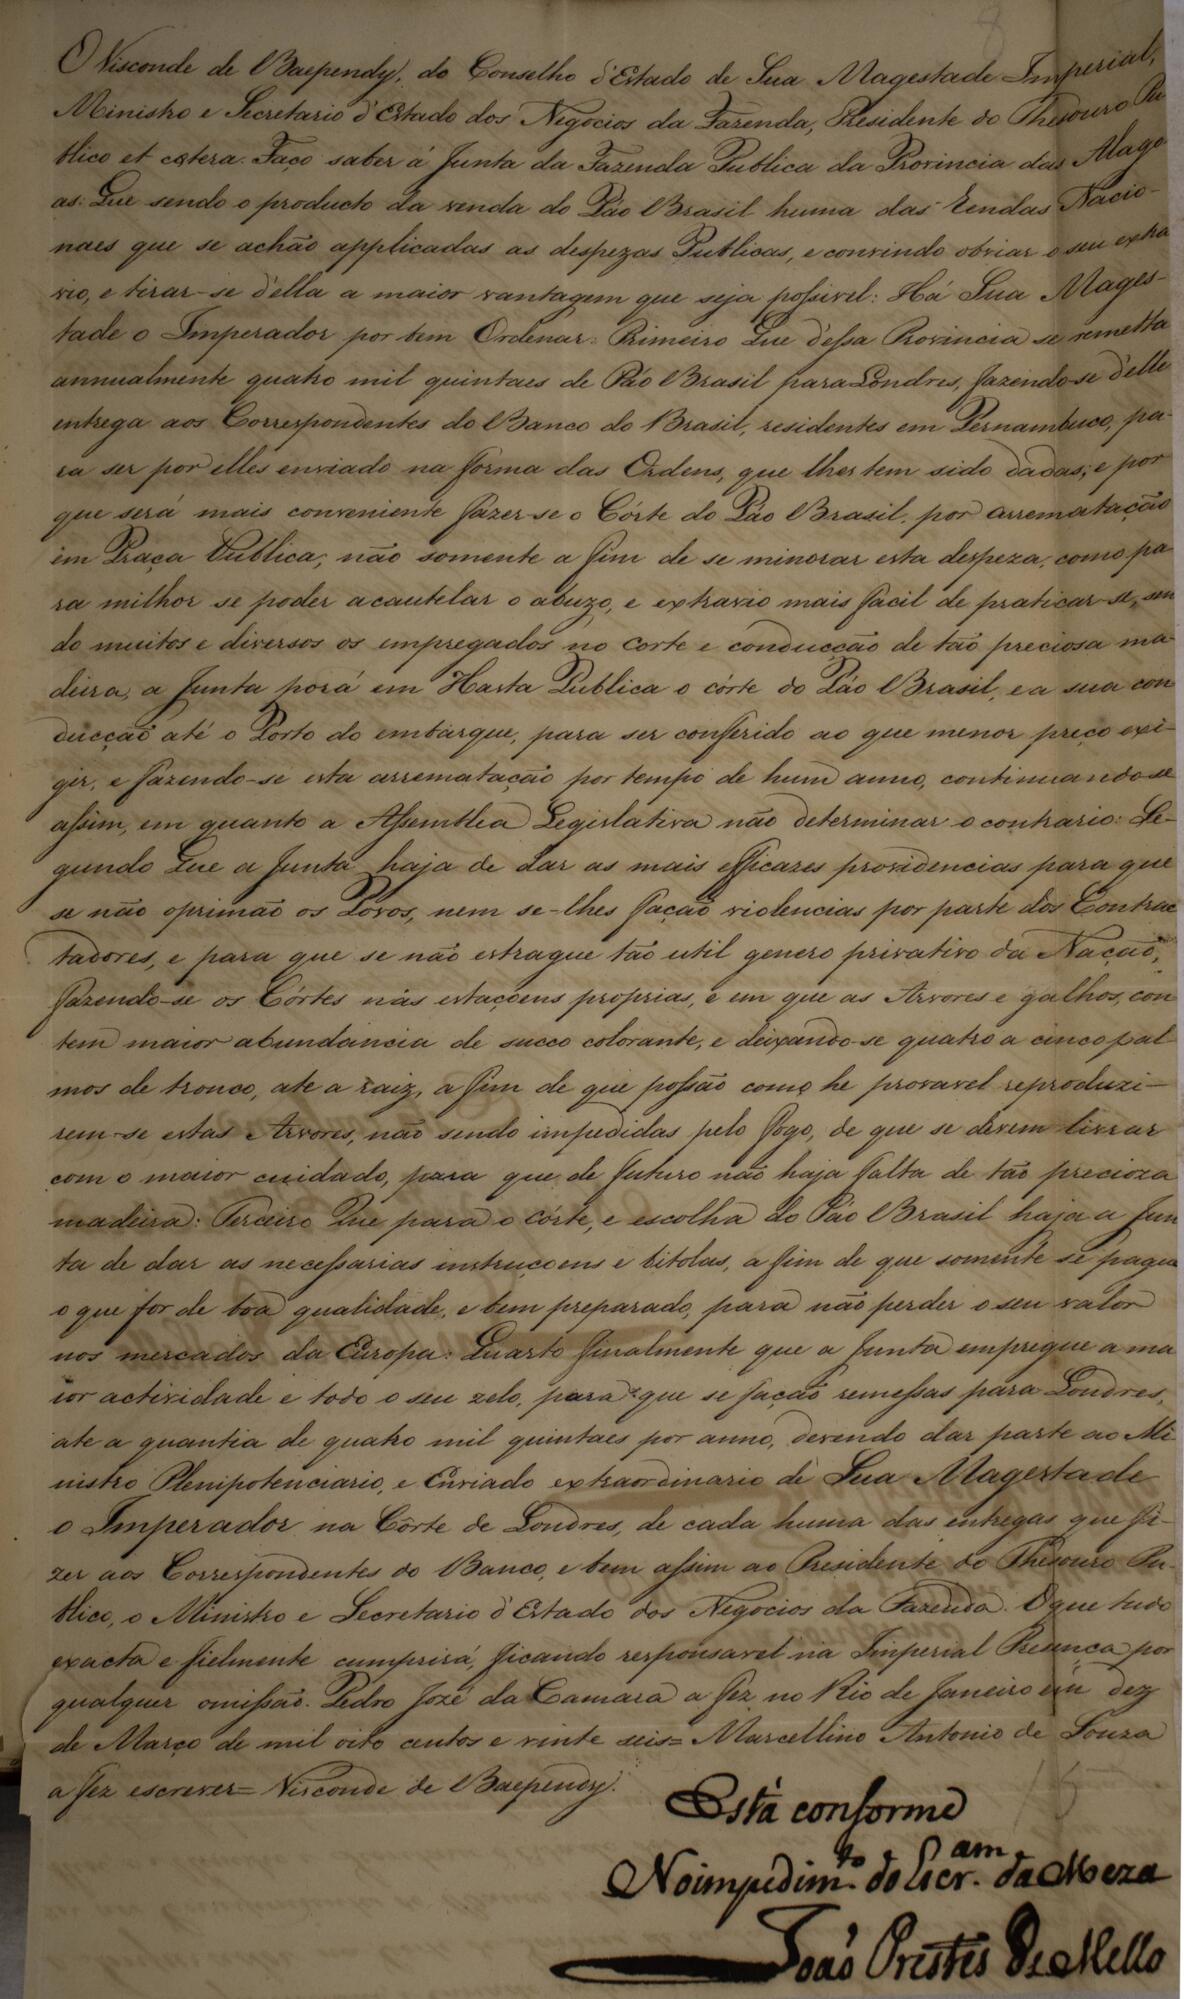 O Visconde de Baependy, do Conselho d'Estado de Sua Magestade Imperial,
Ministro e Secretario d'Estado dos Negocios da Fazenda, Presidente do Thesouro Pu
blico et cætera. Faço saber á Junta da Fazenda Publica da Provincia das Alago
as: Que sendo o producto da venda do Páo Brasil huma das Rendas Nacio-
naes que se achão applicadas as despezas Publicas, e convindo obviar o seu extra
vio, e tirar-se d'ella a maior vantagem que seja possivel: Há Sua Mages-
tade o Imperador por bem Ordenar: Primeiro Que d'essa Provincia se remetta
annualmente quatro mil quintaes de Páo Brasil para Londres, fazendo-se d'elle
entrega aos Correspondentes do Banco do Brasil, residentes em Pernambuco, pa-
ra ser por elles enviado na forma das Ordens, que lhes tem sido dadas; e por
que será mais conveniente fazer-se o Córte do Páo Brasil, por arrematação
em Praça Publica, não somente a fim de se minorar esta despeza, como pa
ra milhor se poder acautelar o abuzo, e extravio mais facil de praticar-se, sen
do muitos e diversos os empregados no corte e conducção de tão preciosa ma-
deira, a Junta porá em Hasta Publica o córte do Páo Brasil, e a sua con
ducção até o Porto do embarque, para ser conferido ao que menor preço exi-
gir, e fazendo-se esta arrematação por tempo de hum anno, continuando-se
assim, em quanto a Assemblea Legislativa não determinar o contrario: Se-
gundo Que a Junta haja de dar as mais efficazes providencias para que
se não oprimão os Povos, nem se-lhes fação violencias por parte dos Contrac
tadores, e para que se não estrague tão util genero privativo da Nação,
fazendo-se os Córtes nas estaçoens proprias, e em que as Arvores e galhos, con
tem maior abundancia de succo colorante, e deixando-se quatro a cinco pal-
mos de tronco, ate a raiz, a fim de que possão como he provavel reproduzi-
rem-se estas Arvores, não sendo impedidas pelo fogo, de que se devem livrar
com o maior cuidado, para que de futuro não haja falta de tão precioza
madeira: Terceiro Que para o córte, e escolha do Páo Brasil haja a Jun
ta de dar as necessarias instruçoens e bitolas, a fim de que somente se pague
o que for de boa qualidade, e bem preparado, para não perder o seu valor
nos mercados da Europa: Quarto finalmente que a Junta empregue a ma
ior actividade e todo o seu zelo, para que se fação remessas para Londres,
ate a quantia de quatro mil quintaes por anno, devendo dar parte ao Mi-
nistro Plenipotenciario, e Enviado extraordinario de Sua Magestade
o Imperador na Côrte de Londres, de cada huma das entregas que fi-
zer aos Correspondentes do Banco, e bem assim ao Presidente do Thesouro Pu-
blico, o Ministro e Secretario d'Estado dos Negocios da Fazenda. O que tudo
exacta e fielmente cumprirá, ficando responsavel na Imperial Presença por
qualquer omissão. Pedro José da Camara a fez no Rio de Janeiro em dez
de Março de mil oito centos e vinte seis= Marcellino Antonio de Souza
a fez escrever= Visconde de Baependy.
Está conforme
No impedim.to do Escr.am da Meza
João Prestes De Mello